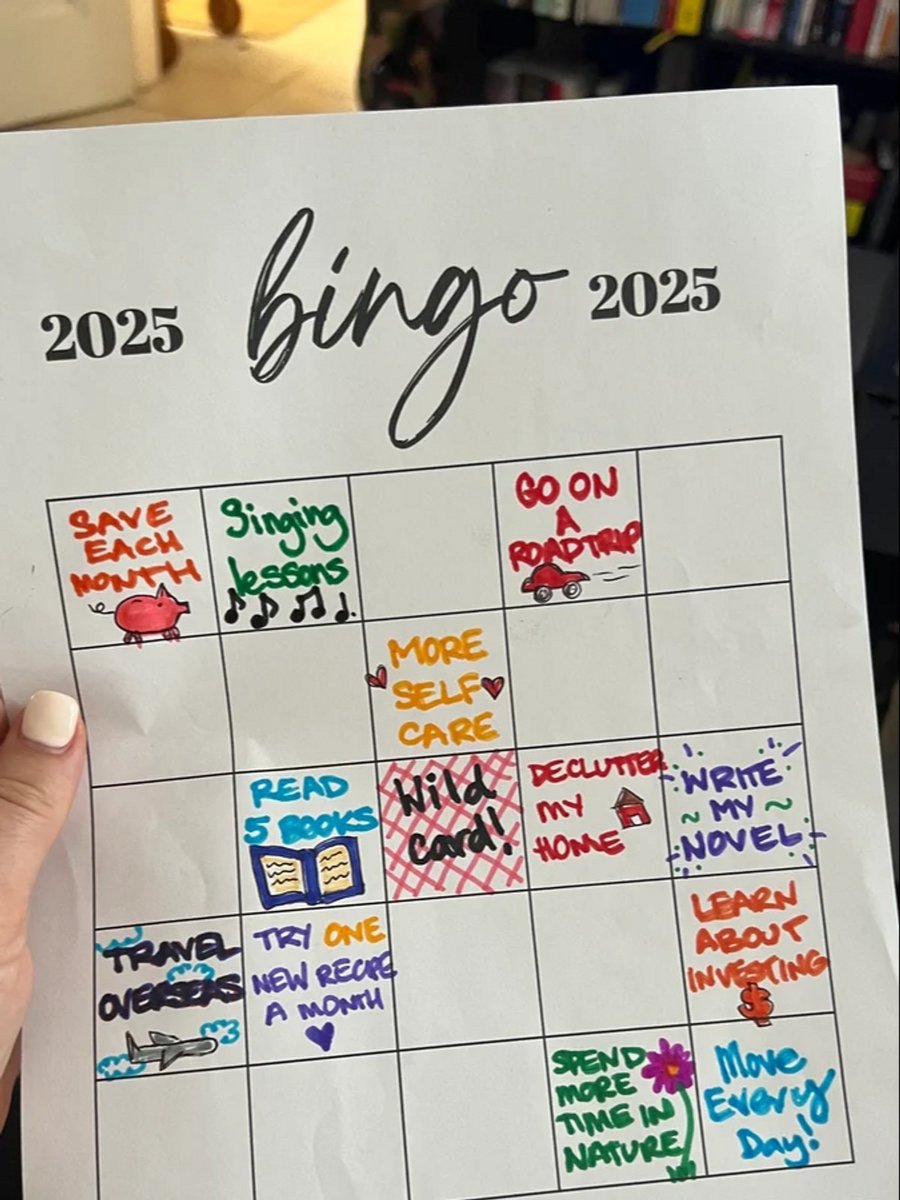 2025 bingo 2025
SAVE
EACH
MONTH
Singing
lessons
GO ON
A
ROADTRIP
MORE
SELF
CARE
READ
5 BOOKS
Wild
card!
DECLUTTER
MY
HOME
WRITE
MY
NOVEL
TRAVEL
OVERSEAS
TRY ONE
NEW RECIPE
A MONTH
LEARN
ABOUT
INVESTING
$
SPEND
MORE
TIME IN
NATURE
Move
Every
Day!